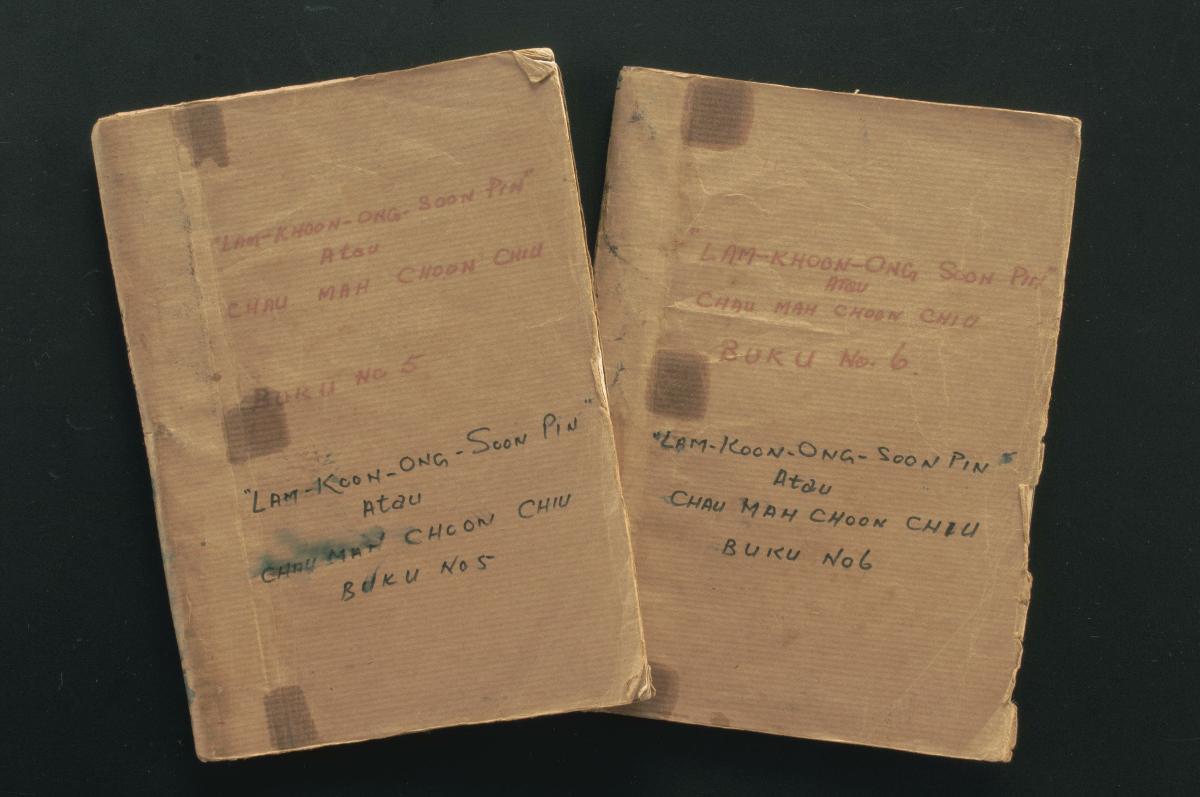 "LAM-KHOON-ONG-SOON PIN"
Atau
CHAU MAH CHOON CHIU
BUKU No 5
"LAM-KOON-ONG-SOON PIN"
Atau
CHAU MAH CHOON CHIU
BUKU No 5
"LAM-KHOON-ONG SOON PIN"
Atau
CHAU MAH CHOON CHIU
BUKU No. 6.
"LAM-KOON-ONG-SOON PIN"
Atau
CHAU MAH CHOON CHIU
BUKU No 6